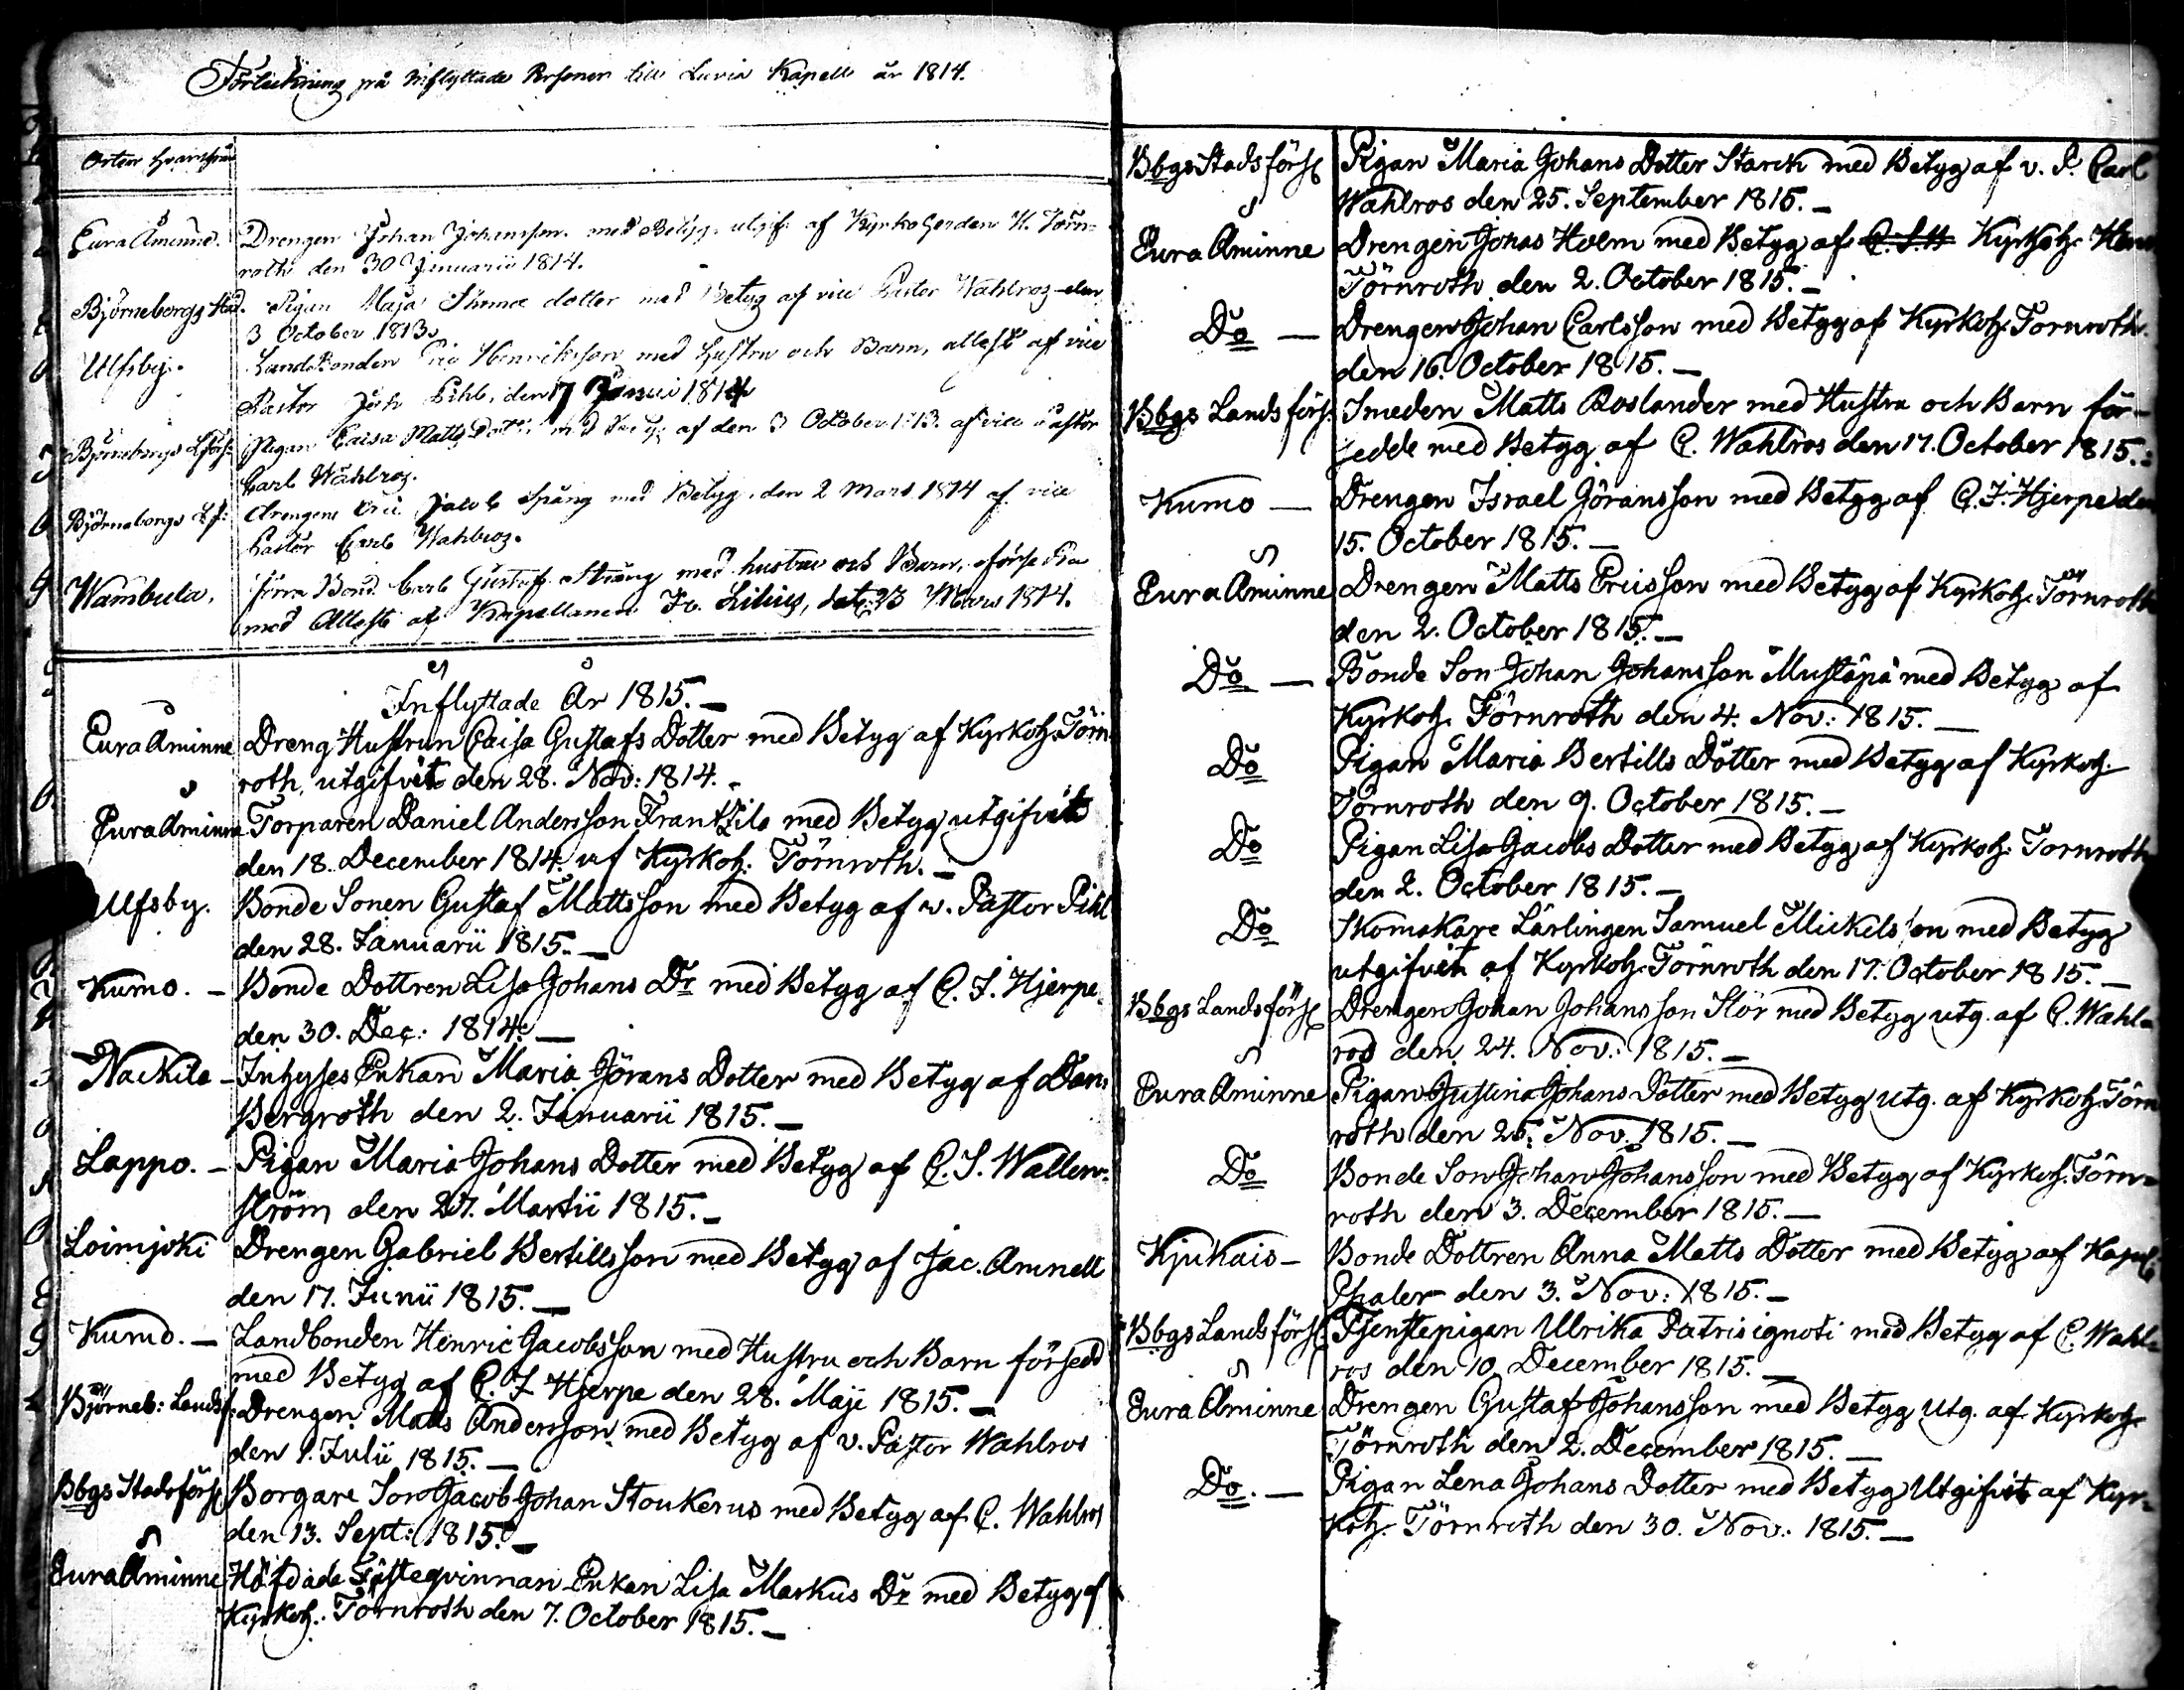 Förteckning på Inflyttade Personer till Luvia Kapell år 1814.
Orten hvarifrån
Eura Åminne. Drengen Johan Johansson med Betyg utgif: af Kyrko Herden H. Törn-
roth den 30 Januarii 1814.
Björneborgs Stad. Pigan Maja Thomæ dotter med Betyg af vice Pastor Wahlros den
3 October 1813.
Ulfsby. Landbonden Eric Henriksson med Hustru och Barn, attest af vice
Pastor Joh Pihl, den 17 Junii 1814
Björneborgs Lförs: Pigan Caisa Matts Dotter med Betyg af den 3 October 1813. af vice Pastor
Carl Wahlros.
Björneborgs Lf: drengen Eric Jacob Spång med Betyg. den 2 Mars 1814 af vice
Pastor Carl Wahlros.
Wambula. förra Bond. Carl Gustaf Sträng med hustru och Barn,
med Attest af Kapellanen Fr. Lilius, dat: 23 Mars 1814.
Inflyttade År 1815.
Eura Åminne Dreng Hustrun Caisa Gustafs Dotter med Betyg af Kyrkoh. Törn-
roth, utgifvit den 28. Nov: 1814.
Eura Åminne Torparen Daniel Andersson Frantzila med Betyg utgifvit
den 18. December 1814. af Kyrkoh: Törnroth. —
Ulfsby. Bonde Sonen Gustaf Mattsson med Betyg af v. Pastor Pihl
den 28. Januarii 1815. —
Kumo. — Bonde Dottren Lisa Johans Dr med Betyg af C. J. Hjerpe
den 30. Dec: 1814. —
Nackila — Inhyses Enkan Maria Jörans Dotter med Betyg af Dan:
Bergroth den 2. Januarii 1815. —
Lappo. — Pigan Maria Johans Dotter med Betyg af C. S. Wallen-
ström den 27. Martii 1815. —
Loimjoki Drengen Gabriel Bertillsson med Betyg af Jac. Amnell
den 17. Junii 1815. —
Kumo. — Landbonden Henric Jacobsson med Hustru och Barn försedd
med Betyg af C. J. Hjerpe den 28. Maji 1815. —
Björneb: Landsf: Drengen Matts Andersson med Betyg af v. Pastor Wahlros
den 1. Julii 1815. —
Bbgs Stadsförs: Borgare Son Jacob Johan Stoukerus med Betyg af C. Wahlros
den 13. Sept: 1815. —
Eura Åminne Häfdade Fästeqvinnan Enkan Lisa Markus Dr med Betyg af
Kyrkoh: Törnroth den 7. October 1815. —
Bbgs Stadsförs: Pigan Maria Johans Dotter Starck med Betyg af v. P. Carl
Wahlros den 25. September 1815. —
Eura Åminne Drengen Jonas Holm med Betyg af Kyrkoh. Henr
Törnroth den 2. October 1815. —
Do — Drengen Johan Carlsson med Betyg af Kyrkoh. Törnroth.
den 16. October 1815. —
Bbgs Landsförs: Smeden Matts Roslander med Hustru och Barn för-
sedde med Betyg af C. Wahlros den 17. October 1815. —
Kumo — Drengen Israel Göransson med Betyg af C. J. Hjerpe den
15. October 1815. —
Eura Åminne Drengen Matts Ericsson med Betyg af Kyrkoh. Törnroth
den 2. October 1815. —
Do — Bonde Son Johan Johansson Mustapä med Betyg af
Kyrkoh. Törnroth den 4. Nov: 1815. —
Do Pigan Maria Bertills Dotter med Betyg af Kyrkoh.
Törnroth den 9. October 1815. —
Do Pigan Lisa Jacobs Dotter med Betyg af Kyrkoh: Törnroth
den 2. October 1815. —
Do Skomakare Lärlingen Samuel Mickelsson med Betyg
utgifvit af Kyrkoh. Törnroth den 17. October 1815. —
Bbgs Landsförs: Drengen Johan Johansson Stör med Betyg utg. af C. Wahl-
ros den 24. Nov: 1815. —
Eura Åminne Pigan Justina Johans Dotter med Betyg utg. af Kyrkoh. Törn
roth den 25. Nov. 1815. —
Do Bonde Son Johan Johansson med Betyg af Kyrkoh. Törn-
roth den 3. December 1815. —
Kjukais — Bonde Dottren Anna Matts Dotter med Betyg af Kapel:
Thaler den 3. Nov: 1815. —
Bbgs Landsförs: Tjenstepigan Ulrika Patris ignoti med Betyg af C. Wahl-
ros den 10. December 1815. —
Eura Åminne Drengen Gustaf Johansson med Betyg utg. af Kyrkoh.
Törnroth den 2. December 1815. —
Do. — Pigan Lena Johans Dotter med Betyg Utgifvit af Kyr-
koh. Törnroth den 30. Nov: 1815. —